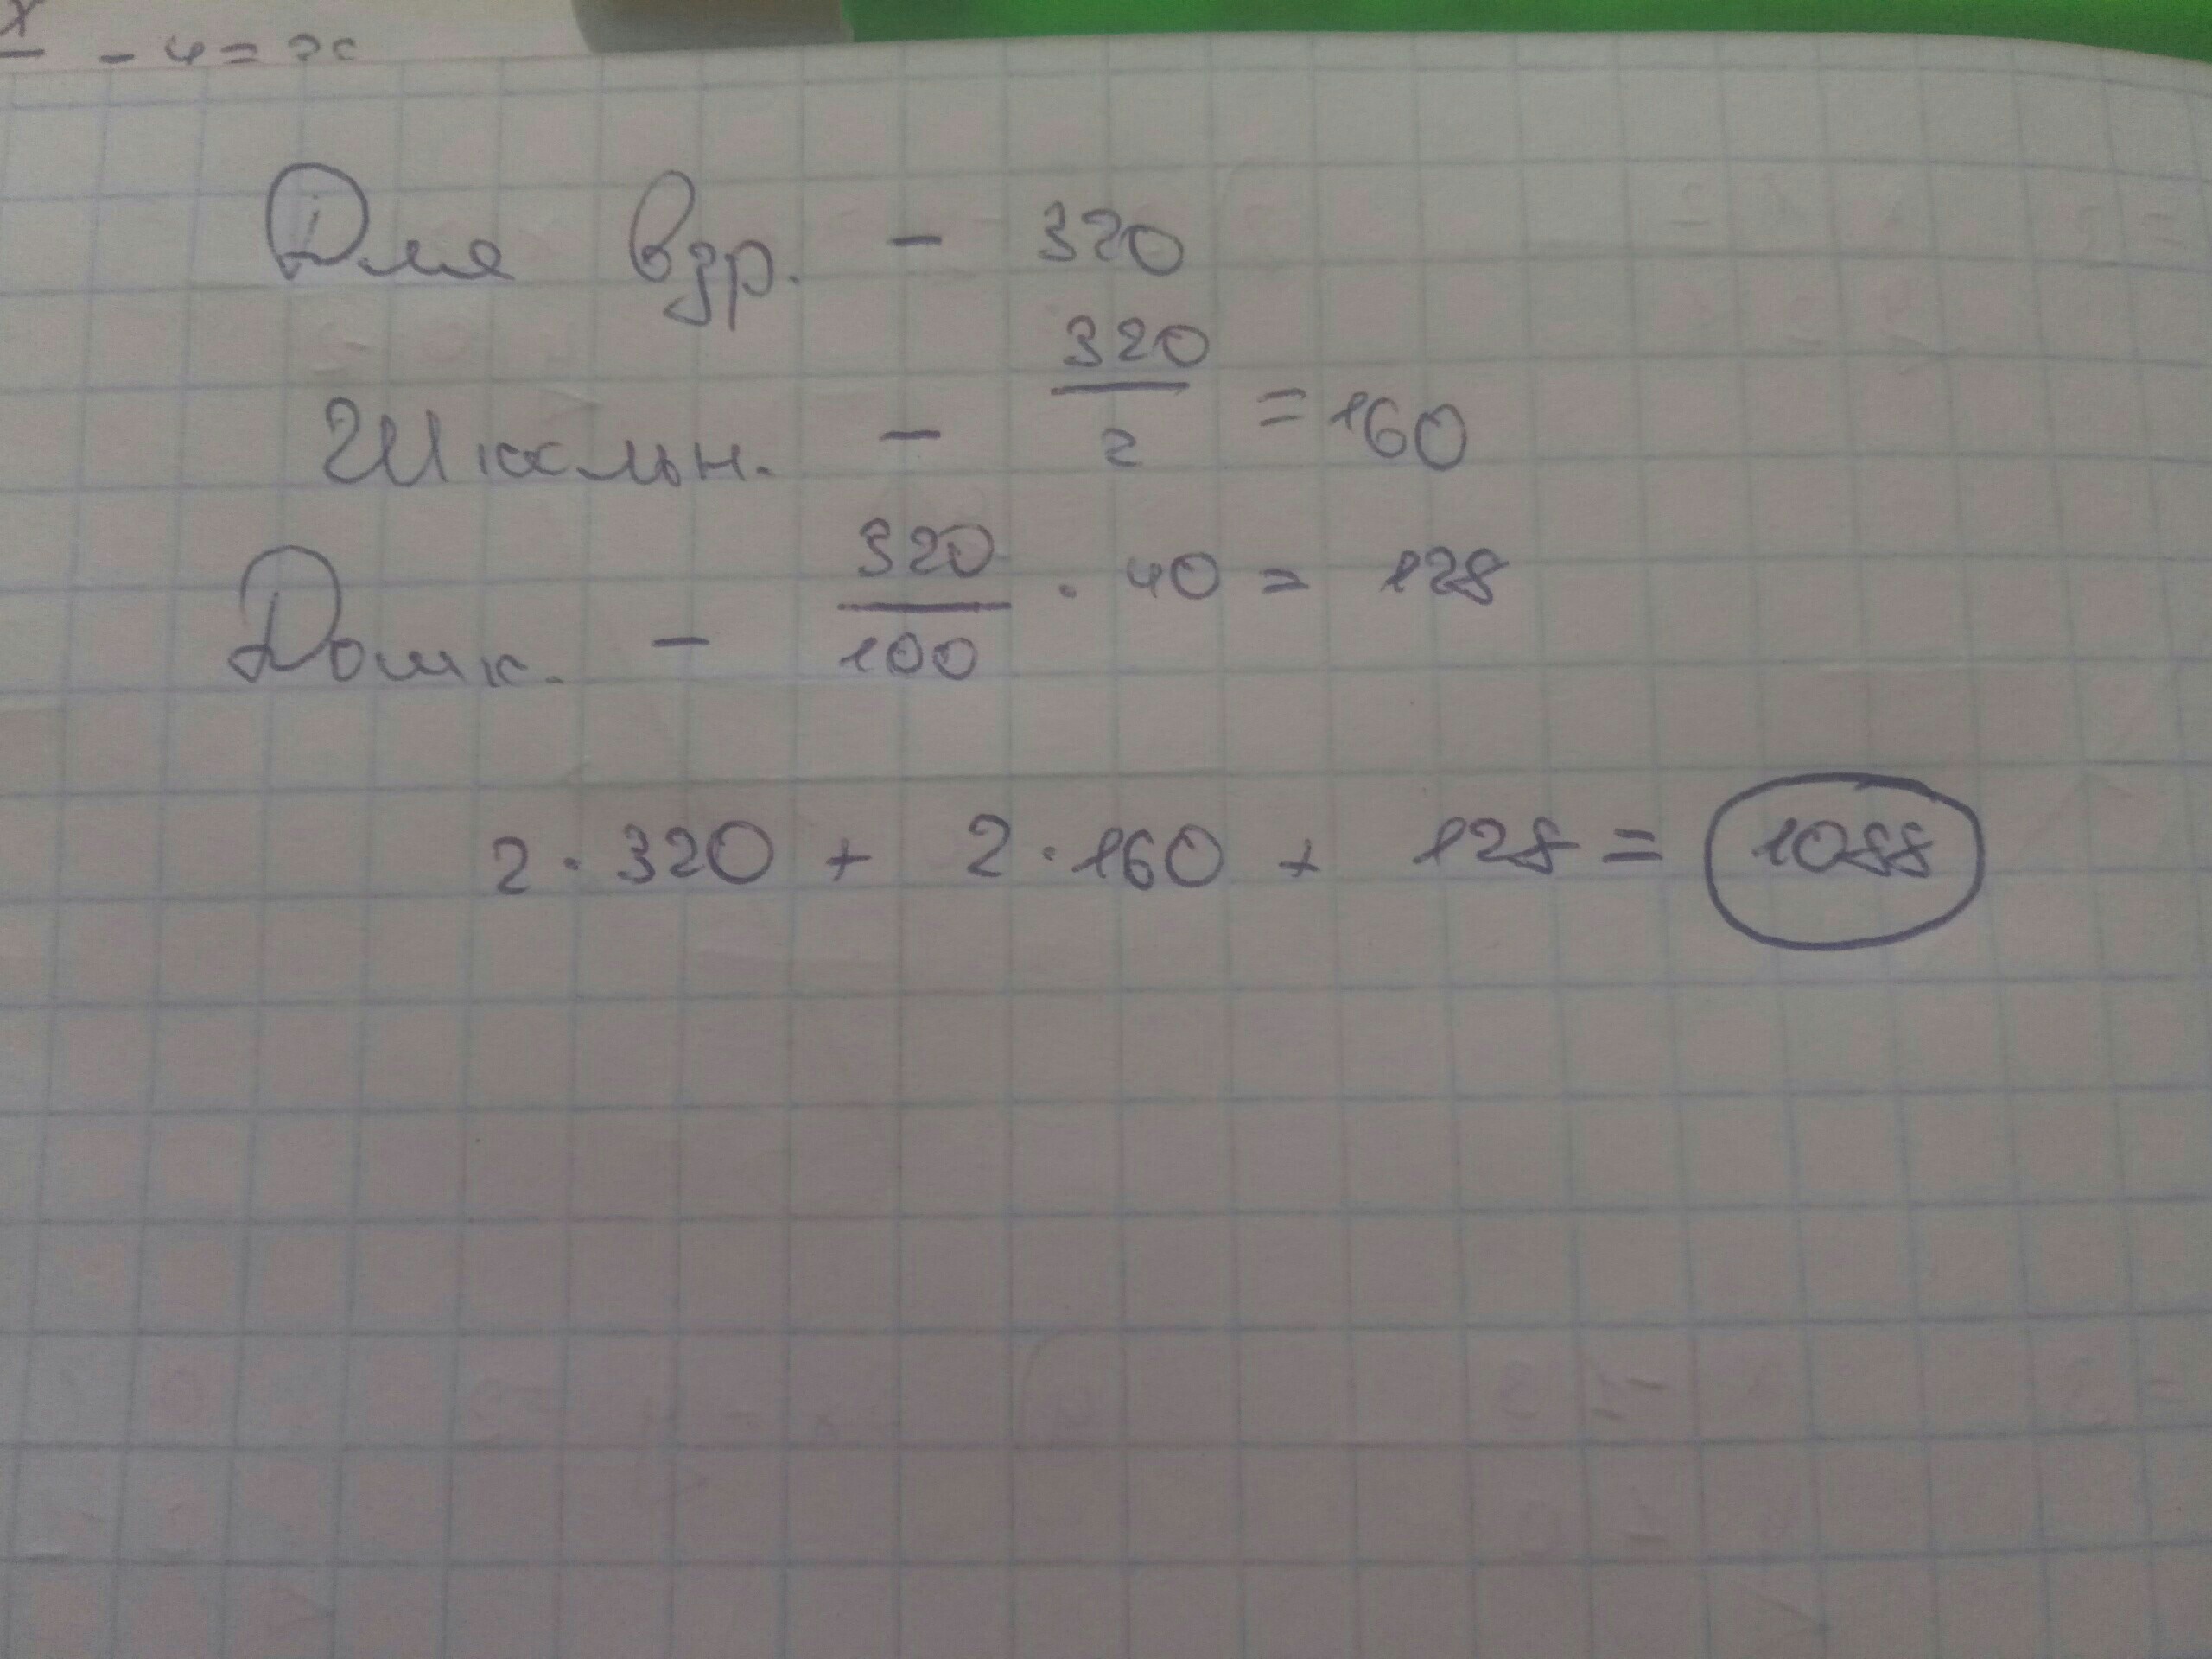 x/ - 4 = x
Для взр. - 320
Школьн. - 320/2 = 160
Дошк. - 320/100 · 40 = 128
2 · 320 + 2 · 160 + 128 = 1088